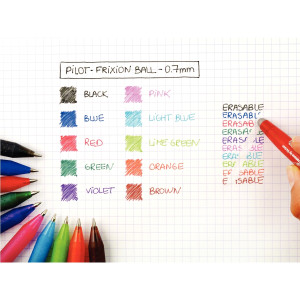 PILOT-FRIXION BALL-0.7mm
BLACK PINK
BLUE LIGHT BLUE
RED LIME GREEN
GREEN ORANGE
VIOLET BROWN
ERASABLE
ERASABL
ERASABLE
ERASABLE
ERASABLE
ERAS BLE
ERASABLE
ER ABLE
EF SABLE
E ISABLE